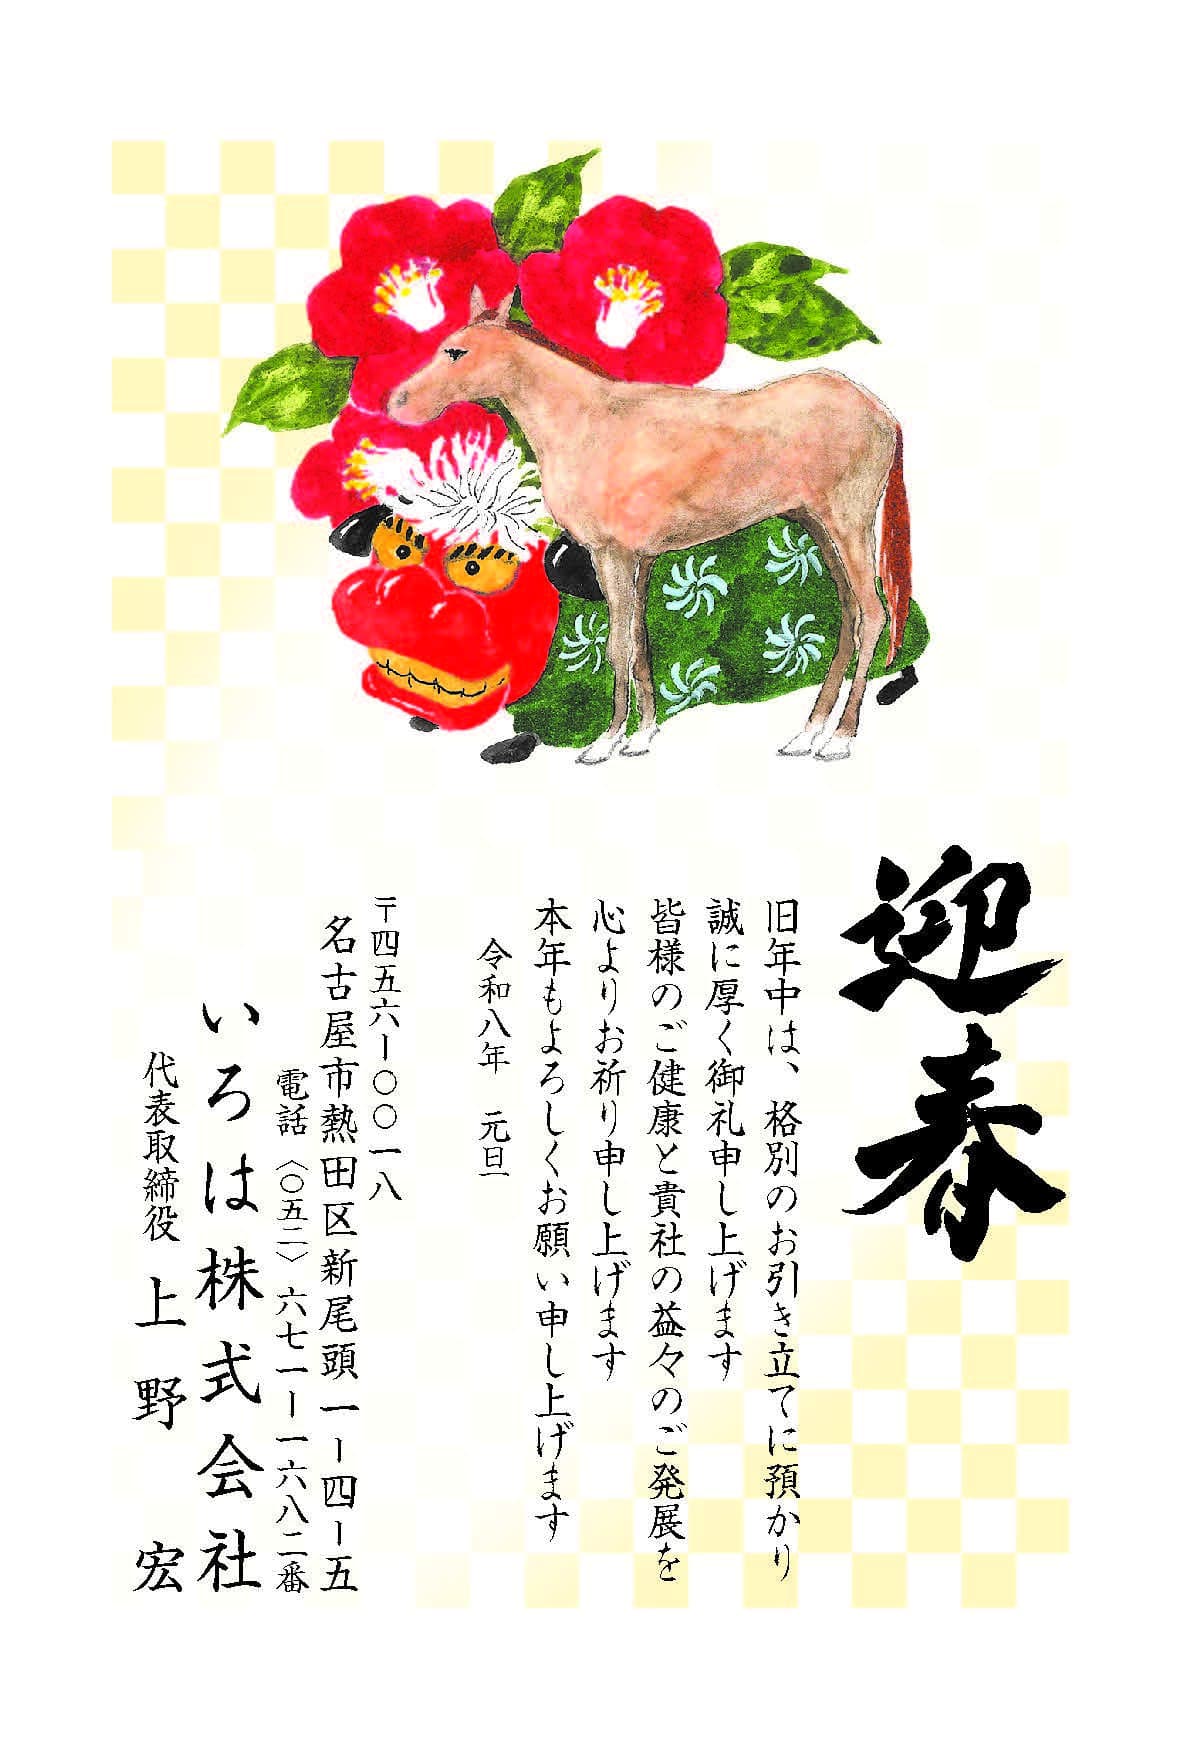 迎春
旧年中は、格別のお引き立てに預かり
誠に厚く御礼申し上げます
皆様のご健康と貴社の益々のご発展を
心よりお祈り申し上げます
本年もよろしくお願い申し上げます
令和八年 元旦
〒四五六ー〇〇一八
名古屋市熱田区新尾頭一ー四ー五
電話〈〇五二〉六七一ー一六八二番
いろは株式会社
代表取締役 上野 宏